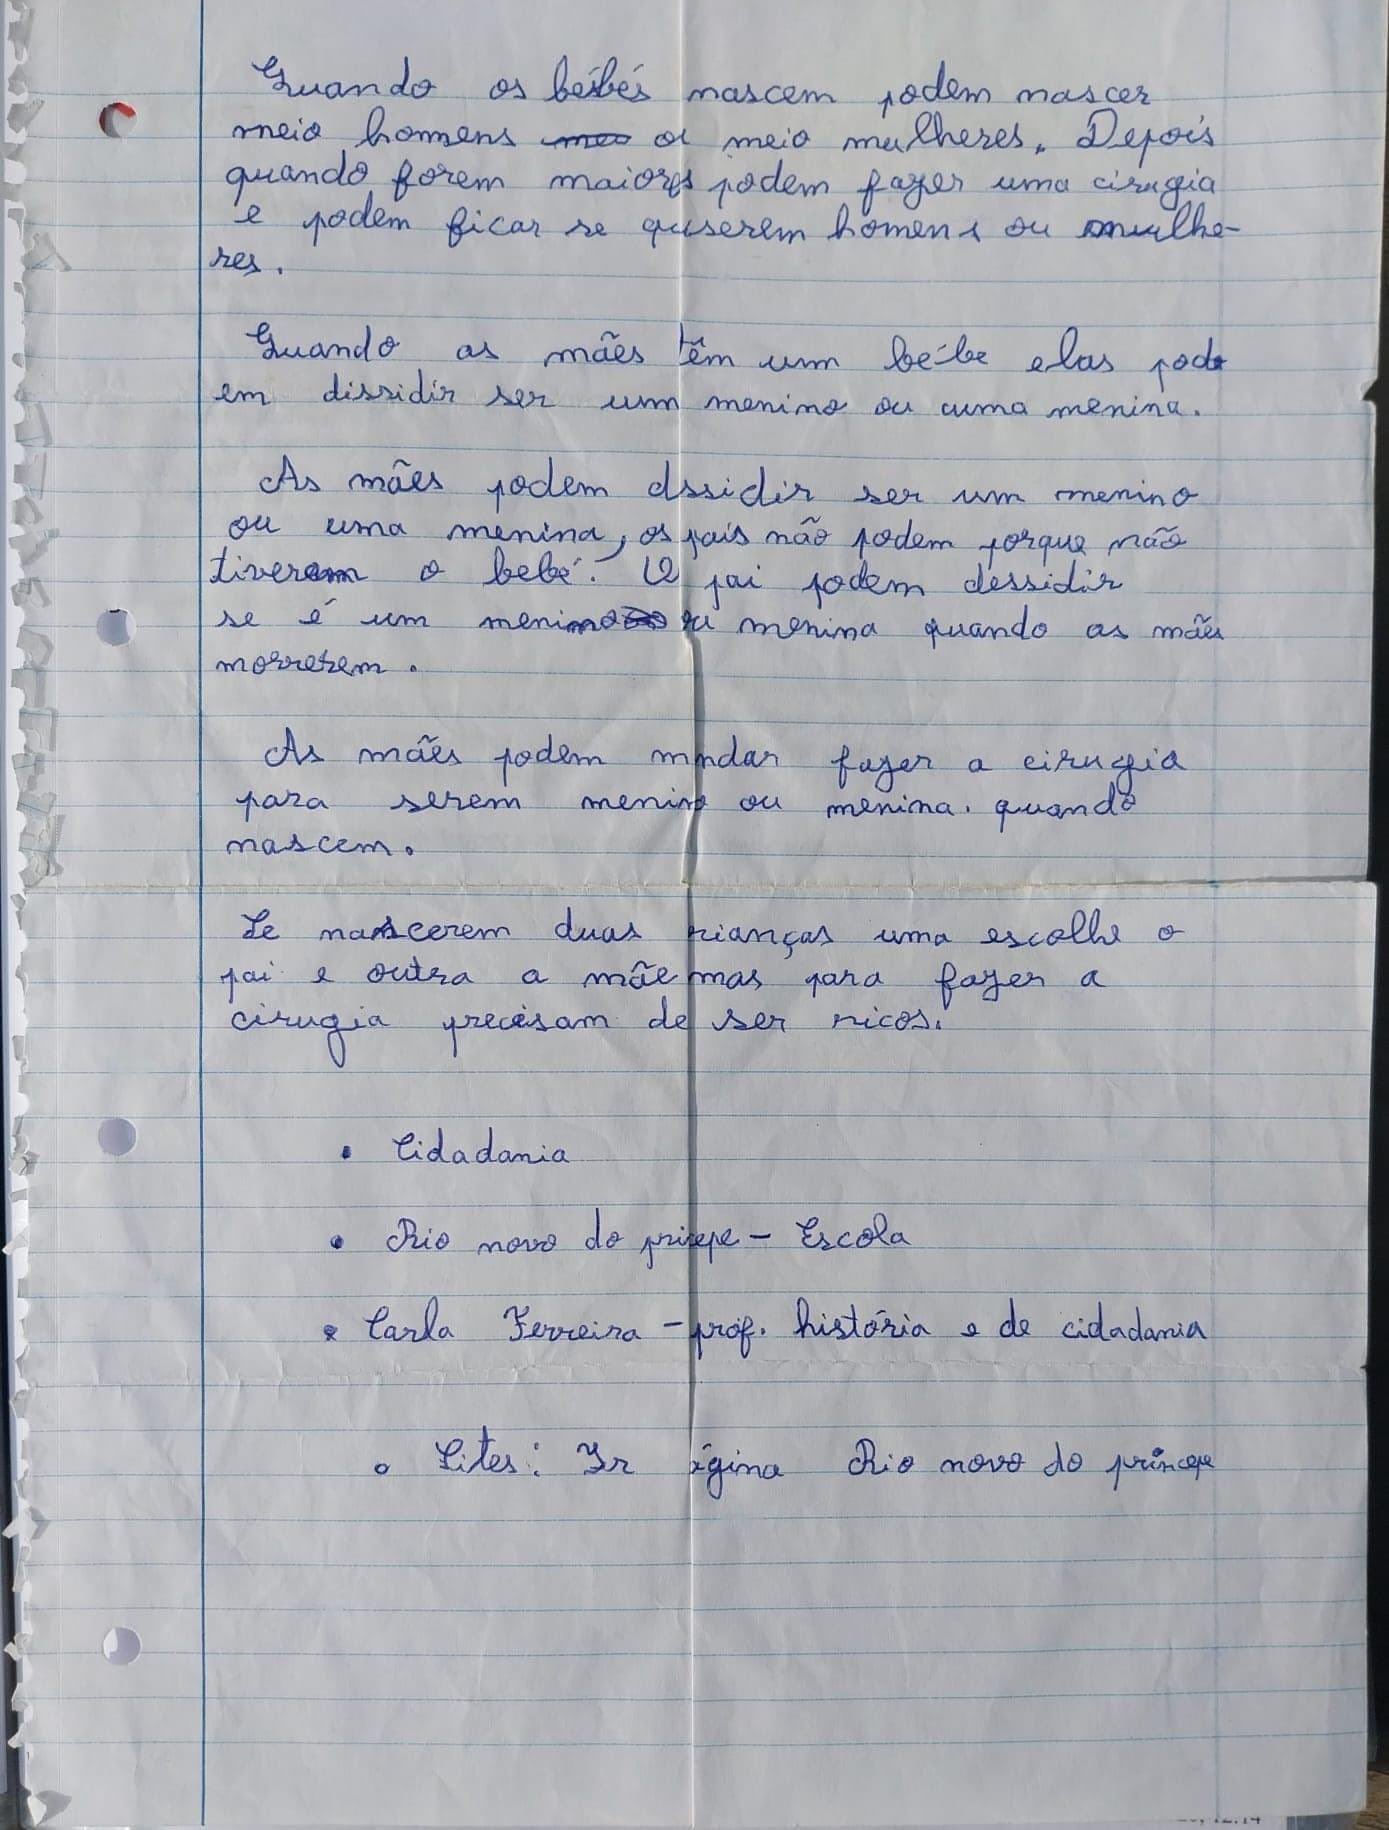 Quando os bébés nascem podem nascer
meio homens ou meio mulheres. Depois
quando forem maiores podem fazer uma cirugia
e podem ficar se quiserem homens ou mulhe-
res.
Quando as mães têm um bébe elas pod
em dissidir ser um menino ou uma menina.
As mães podem dssidir ser um menino
ou uma menina, os pais não podem porque não
tiveram o bebé. O pai podem dessidir
se é um menino ou menina quando as mães
morrerem.
As mães podem mndar fazer a cirugia
para serem menino ou menina. quando
nascem.
Se nascerem duas rianças uma escolhe o
pai e outra a mãe mas para fazer a
cirugia precisam de ser ricos.
• Cidadania
• Rio novo do prizepe - Escola
• Carla Ferreira - prof. história e de cidadania
• Sites: Ir ágina Rio novo do principe